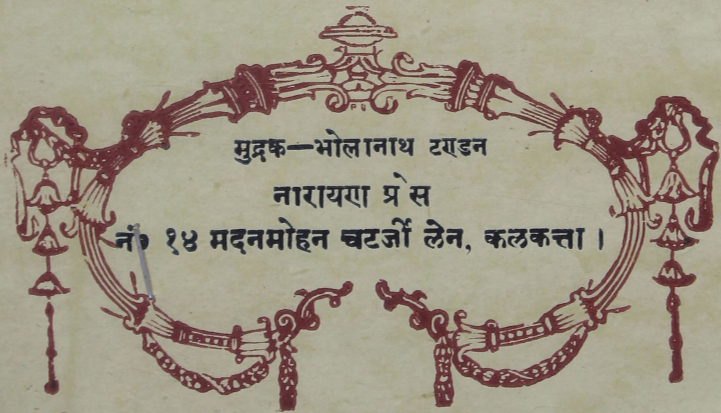 मुद्रक—भोलानाथ टण्डन
नारायण प्रेस
नं० १४ मदनमोहन चटर्जी लेन, कलकत्ता।